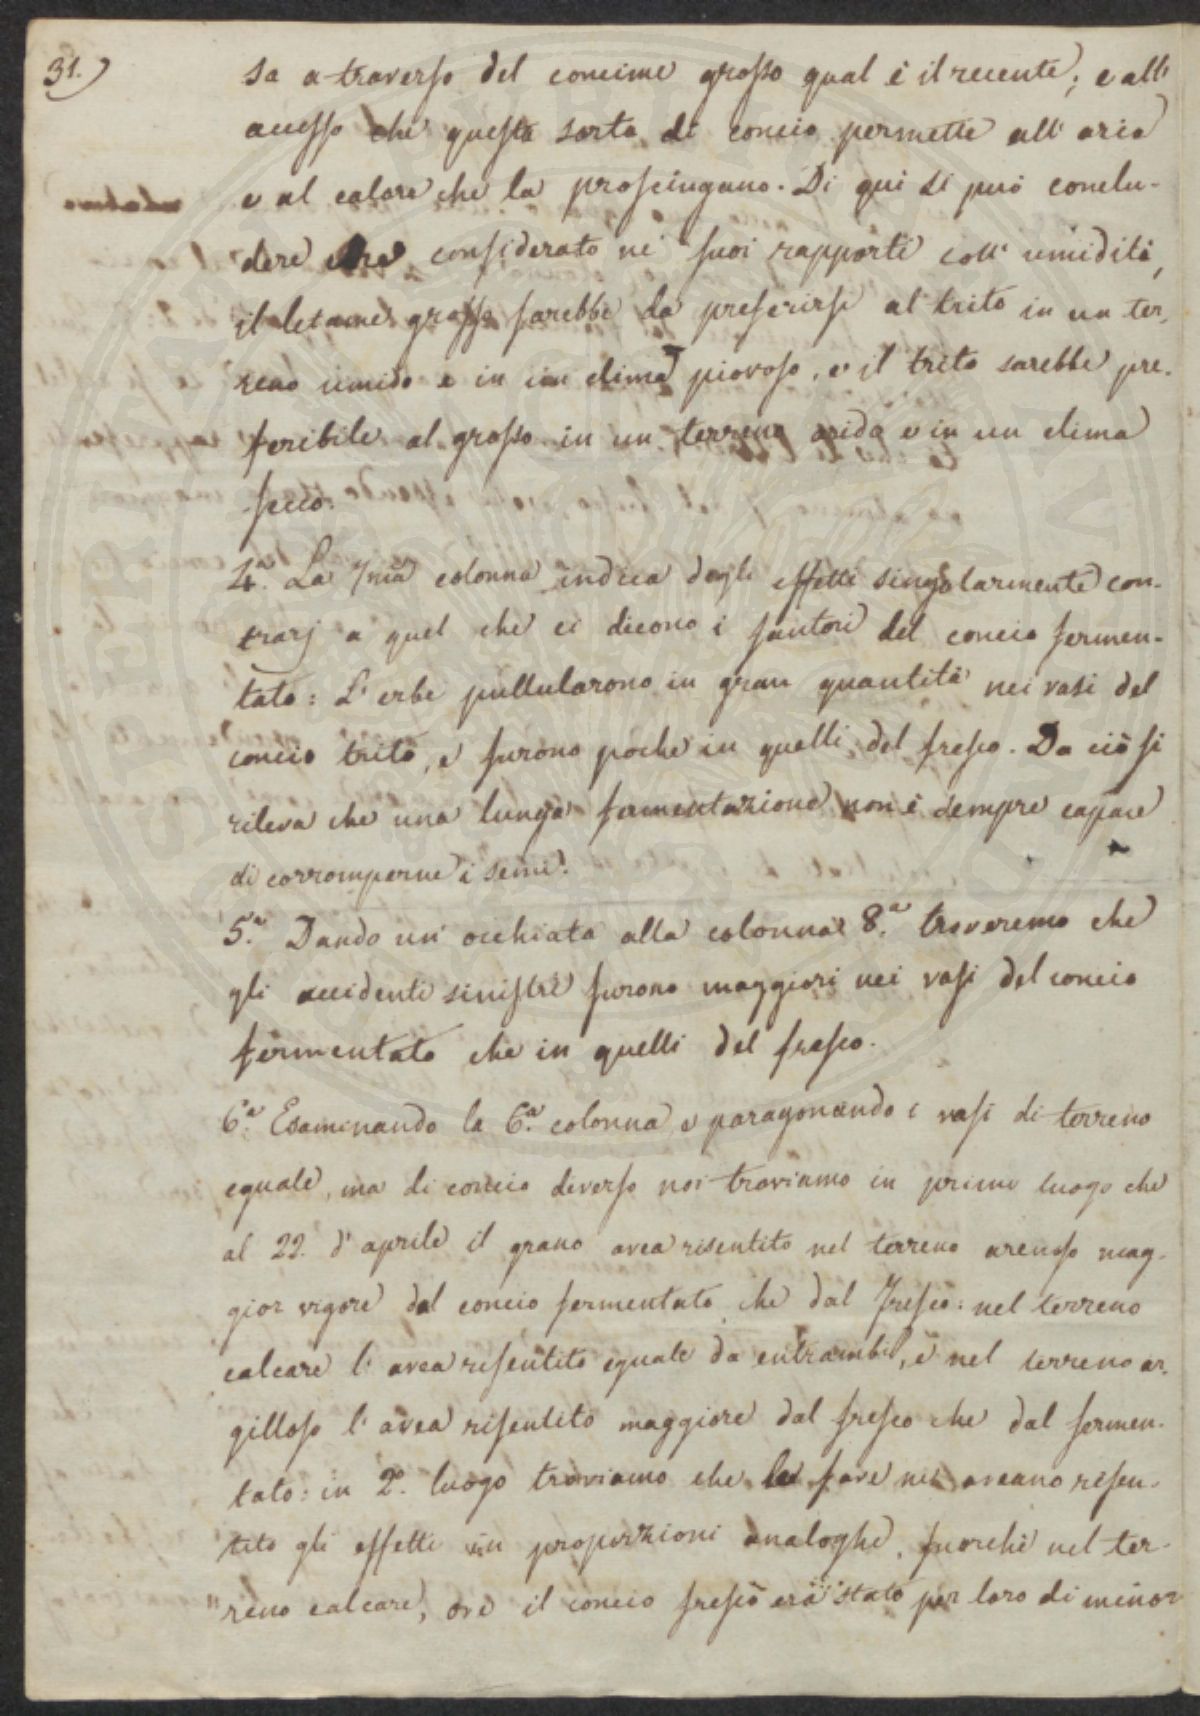 31.)
sa a traverso del concime grosso qual è il recente; e all'
accesso che questa sorta di concio permette all' aria
e al calore che la prosciugano. Di qui si può conclu-
dere che considerato ne' suoi rapporti coll' umidità,
il letame grosso sarebbe da preferirsi al trito in un ter-
reno umido e in un clima piovoso, e il trito sarebbe pre-
feribile al grosso in un terreno arido e in un clima
secco.
4.a La 7ma colonna indica degli effetti singolarmente con-
trarj a quel che ci dicono i fautori del concio fermen-
tato: L' erbe pullularono in gran quantità nei vasi del
concio trito, e furono poche in quelli del fresco. Da ciò si
rileva che una lunga fermentazione non è sempre capace
di corromperne i semi.
5.a Dando un' occhiata alla colonna 8.a troveremo che
gli accidenti sinistri furono maggiori nei vasi del concio
fermentato che in quelli del fresco.
6.a Esaminando la 6.a colonna e paragonando i vasi di terreno
eguale, ma di concio diverso noi troviamo in primo luogo che
al 22. d' aprile il grano avea risentito nel terreno arenoso mag-
gior vigore dal concio fermentato che dal fresco: nel terreno
calcare l' avea risentito eguale da entrambi, e nel terreno ar-
gilloso l' avea risentito maggiore dal fresco che dal fermen-
tato: in 2.o luogo troviamo che le fave ne aveano risen-
tito gli effetti in proporzioni analoghe, fuorchè nel ter-
reno calcare, ove il concio fresco era stato per loro di minor